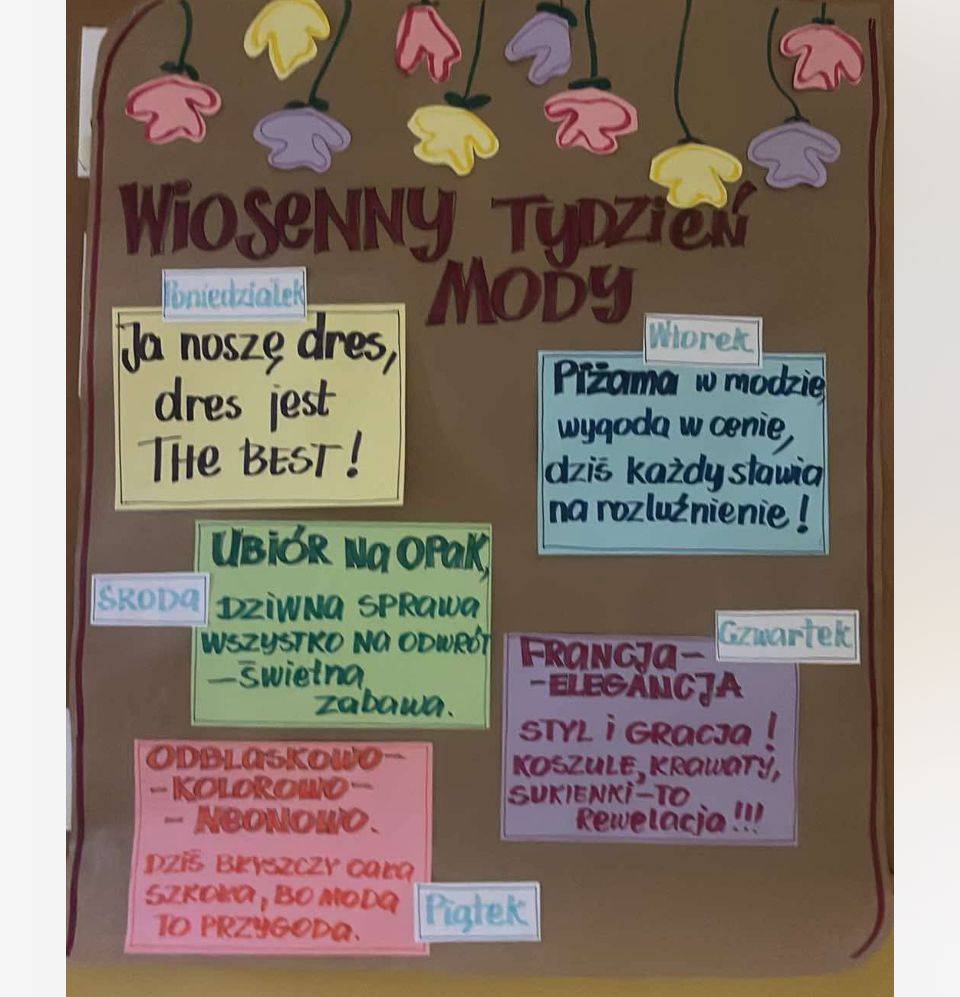 WiOSeNNY TYDZieŃ
MODY
Poniedziałek
Ja noszę dres,
dres jest
THe BEST!
Wtorek
Piżama w modzie,
wygoda w cenie,
dziś każdy stawia
na rozluźnienie!
ŚRODA
UBiÓR NA OPAK,
DZiWNA SPRAWA
WSZYSTKO NA ODWRÓT
–świetna
zabawa.
Czwartek
FRANCJA–
–ELEGANCJA
STYL i GRACJA!
KOSZULE, KRAWATY,
SUKIENKi–TO
Rewelacja!!!
ODBLASKOWO–
–KOLOROWO–
– NEONOWO.
DZiŚ BŁYSZCZY CAŁA
SZKOŁA, BO MODA
TO PRZYGODA.
Piątek